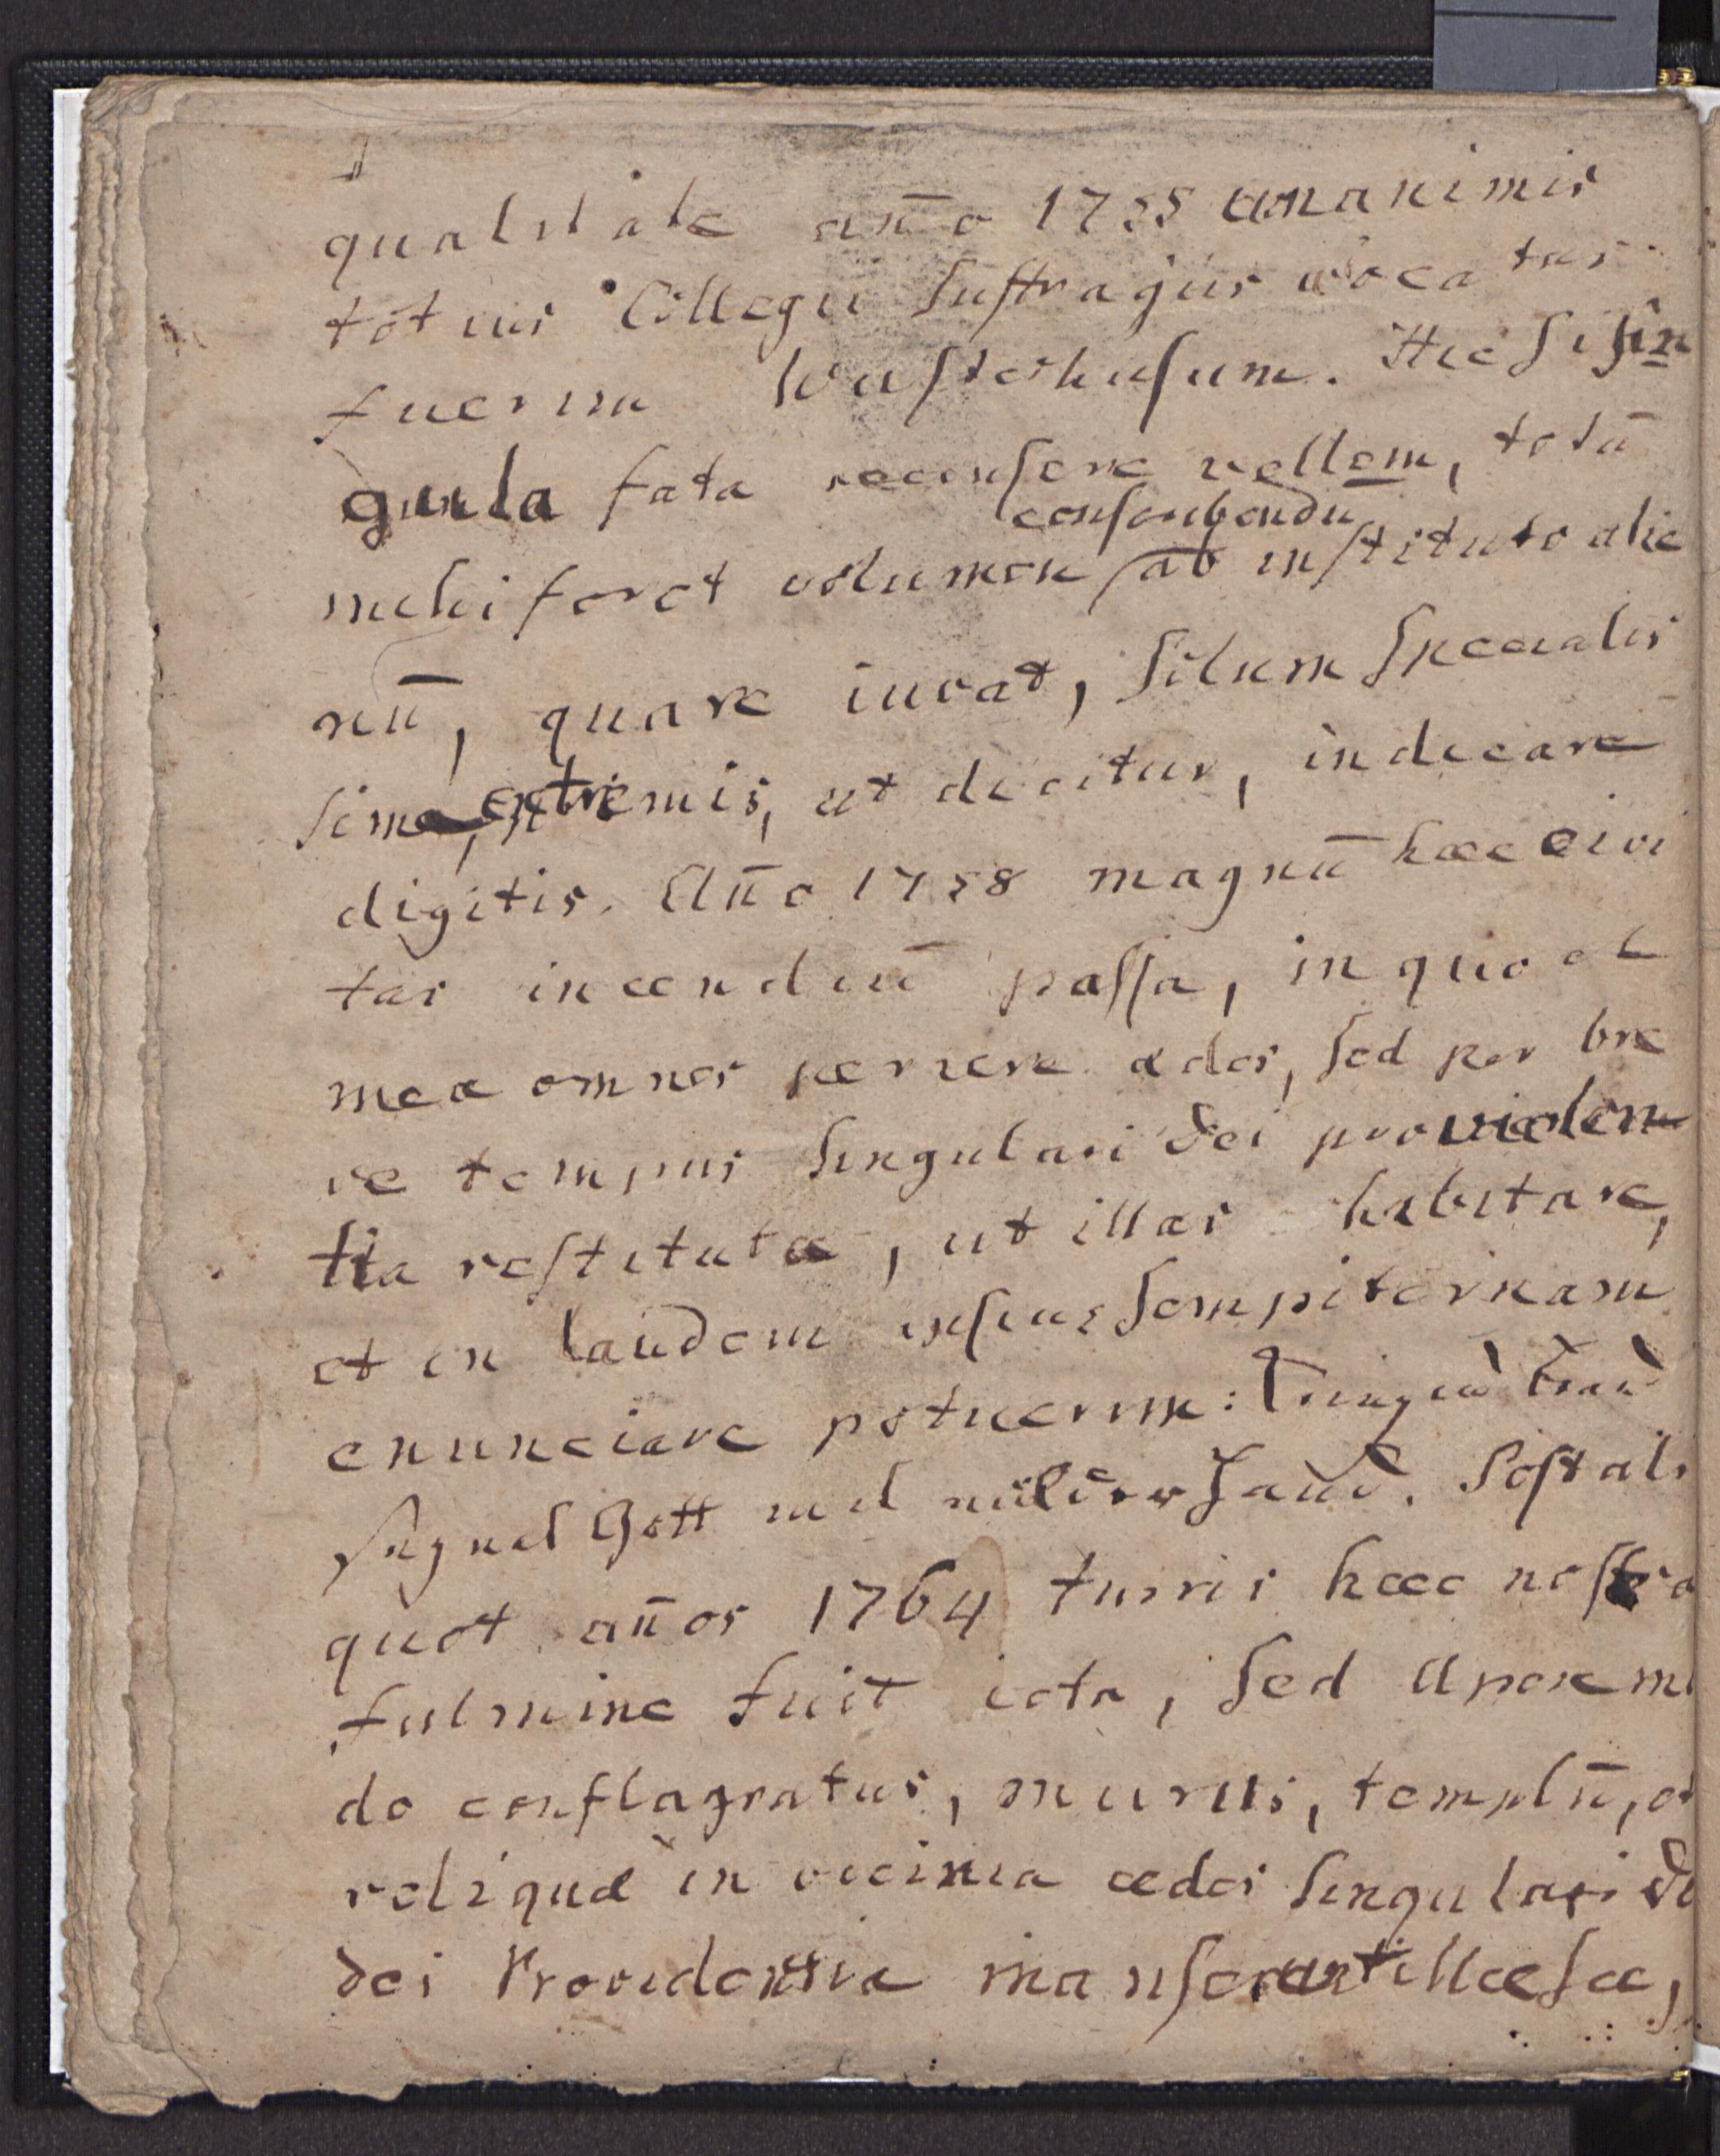 qualitate año 1755 unanimis
totius Collegii Suffragiis vocatus
fuerim Wusterhusum. Hic si sin
gula fata recensere vellem, totū
conscribendū
mihi foret volumen ab instituto alie
nū, quare iuvat, solum specialis
sima, extremis, ut dicitur, indicare
digitis. Año 1758 magnū hæc civi
tas incendiū passa, in quo et
meæ omnes periere ædes, sed per bre
ve tempus singulari Dei providen
tia restitutæ, ut illas habitare,
et in laudem ipsius sempiternam
enunciare potuerim:
segnet Gott mit milder Hand. Post ali
quot años 1764 turris hæc nostra
fulmine fuit icta, sed Apex m
do conflagratus, murus, templū, et
reliquæ in vicinia ædes singulari
Dei Providentia manserunt illæsæ,